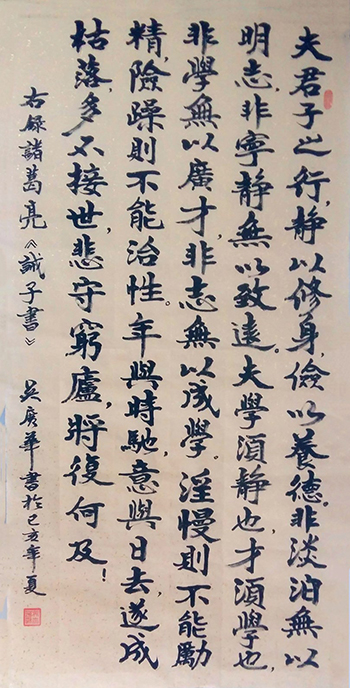 夫君子之行，静以修身，儉以養德。非淡泊無以
明志，非寧静無以致遠。夫學須静也，才須學也，
非學無以廣才，非志無以成學。淫慢則不能勵
精，險躁則不能治性。年與時馳，意與日去，遂成
枯落，多不接世，悲守窮廬，將復何及！
右録諸葛亮《誡子書》 書於己亥年夏